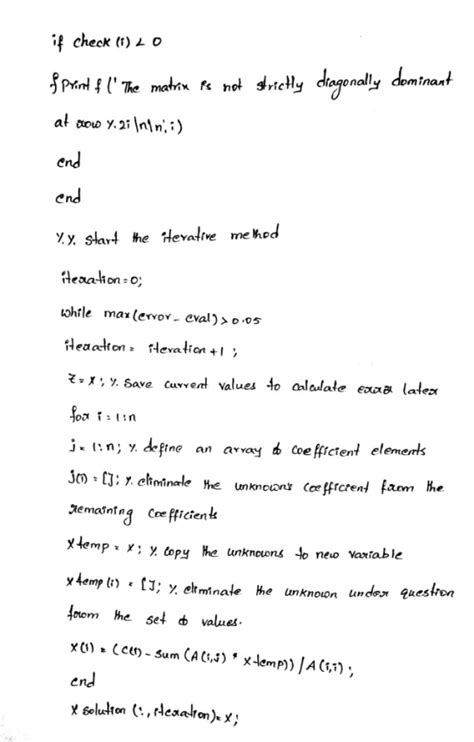 if check (i) < 0
fprintf ('The matrix is not strictly diagonally dominant
at row %2i\n\n',i)
end
end
%% start the iterative method
iteration=0;
while max(error_eval)>0.05
iteration = iteration +1 ;
Z=X; % save current values to calculate error later
for i=1:n
j=1:n; % define an array of coefficient elements
j(i) = []; % eliminate the unknown's coefficient from the
remaining coefficients
xtemp = x; % copy the unknowns to new variable
xtemp(i) = []; % eliminate the unknown under question
from the set of values.
x(i) = (c(i) - sum (A(i,j) * xtemp)) / A(i,i) ;
end
x solution (:, iteration)= x;